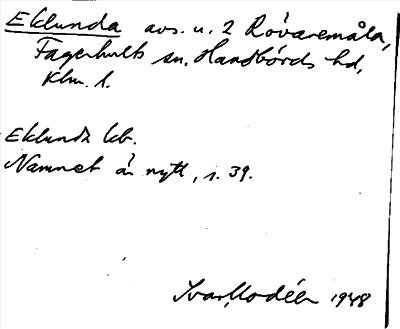 Eklunda avs. u. 2 Rövaremåla,
Fagerhults sn, Handbörds hd,
Klm. l.
Eklunda lb.
Namnet är nytt, s. 39.
Ivar Modéer 1948